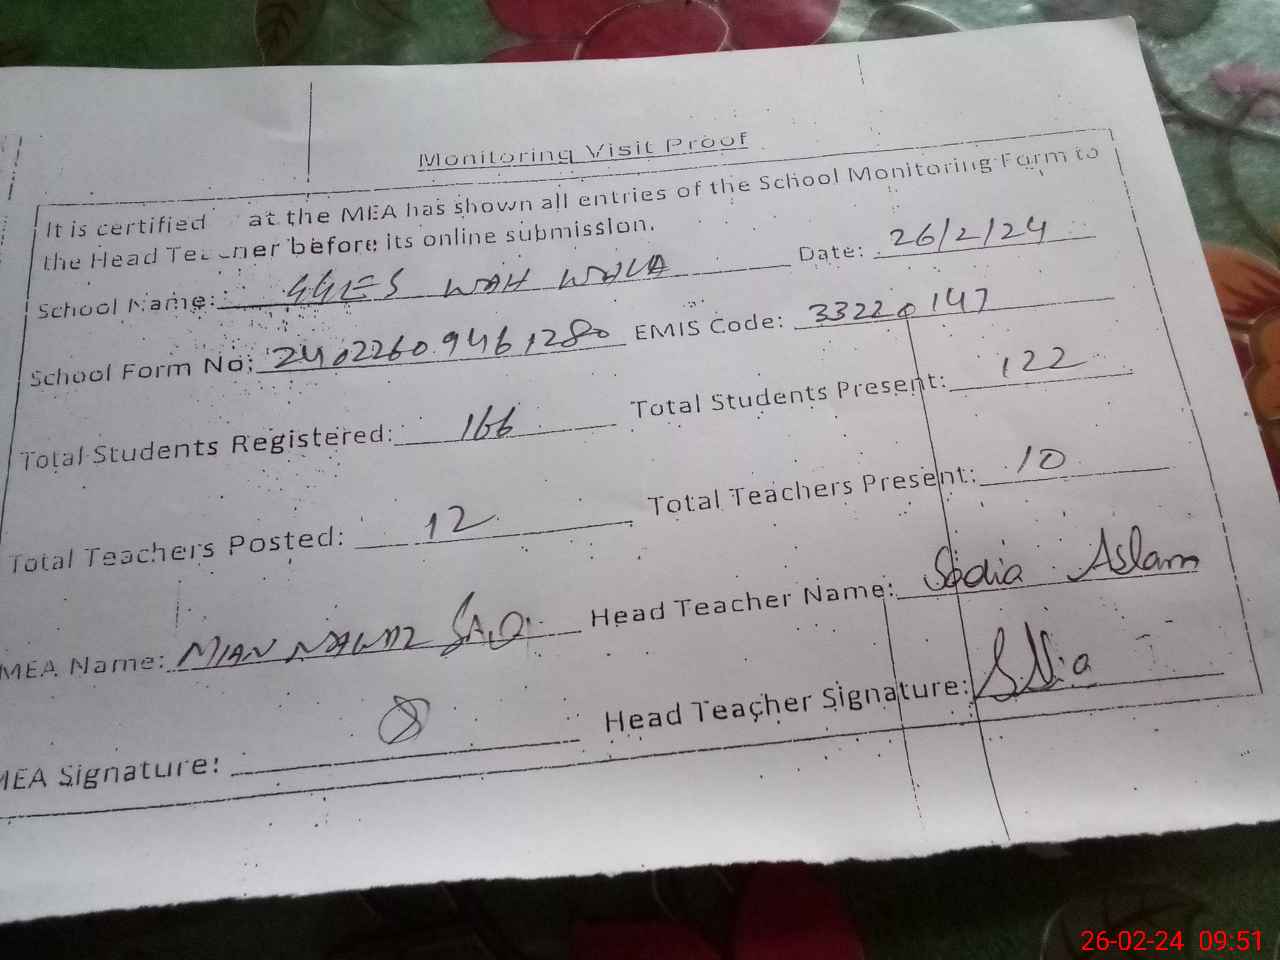 Monitoring Visit Proof
It is certified at the MEA has shown all entries of the School Monitoring Form to
the Head Teacher before its online submission.
School Name: GGES WAH WALA Date: 26/2/24
School Form No: 24022609461280 EMIS Code: 33220147
Total Students Registered: 166 Total Students Present: 122
Total Teachers Posted: 12 Total Teachers Present: 10
MEA Name: MIAN NAWAZ Head Teacher Name: Sadia Aslam
MEA Signature: Head Teacher Signature: Sadia
26-02-24 09:51